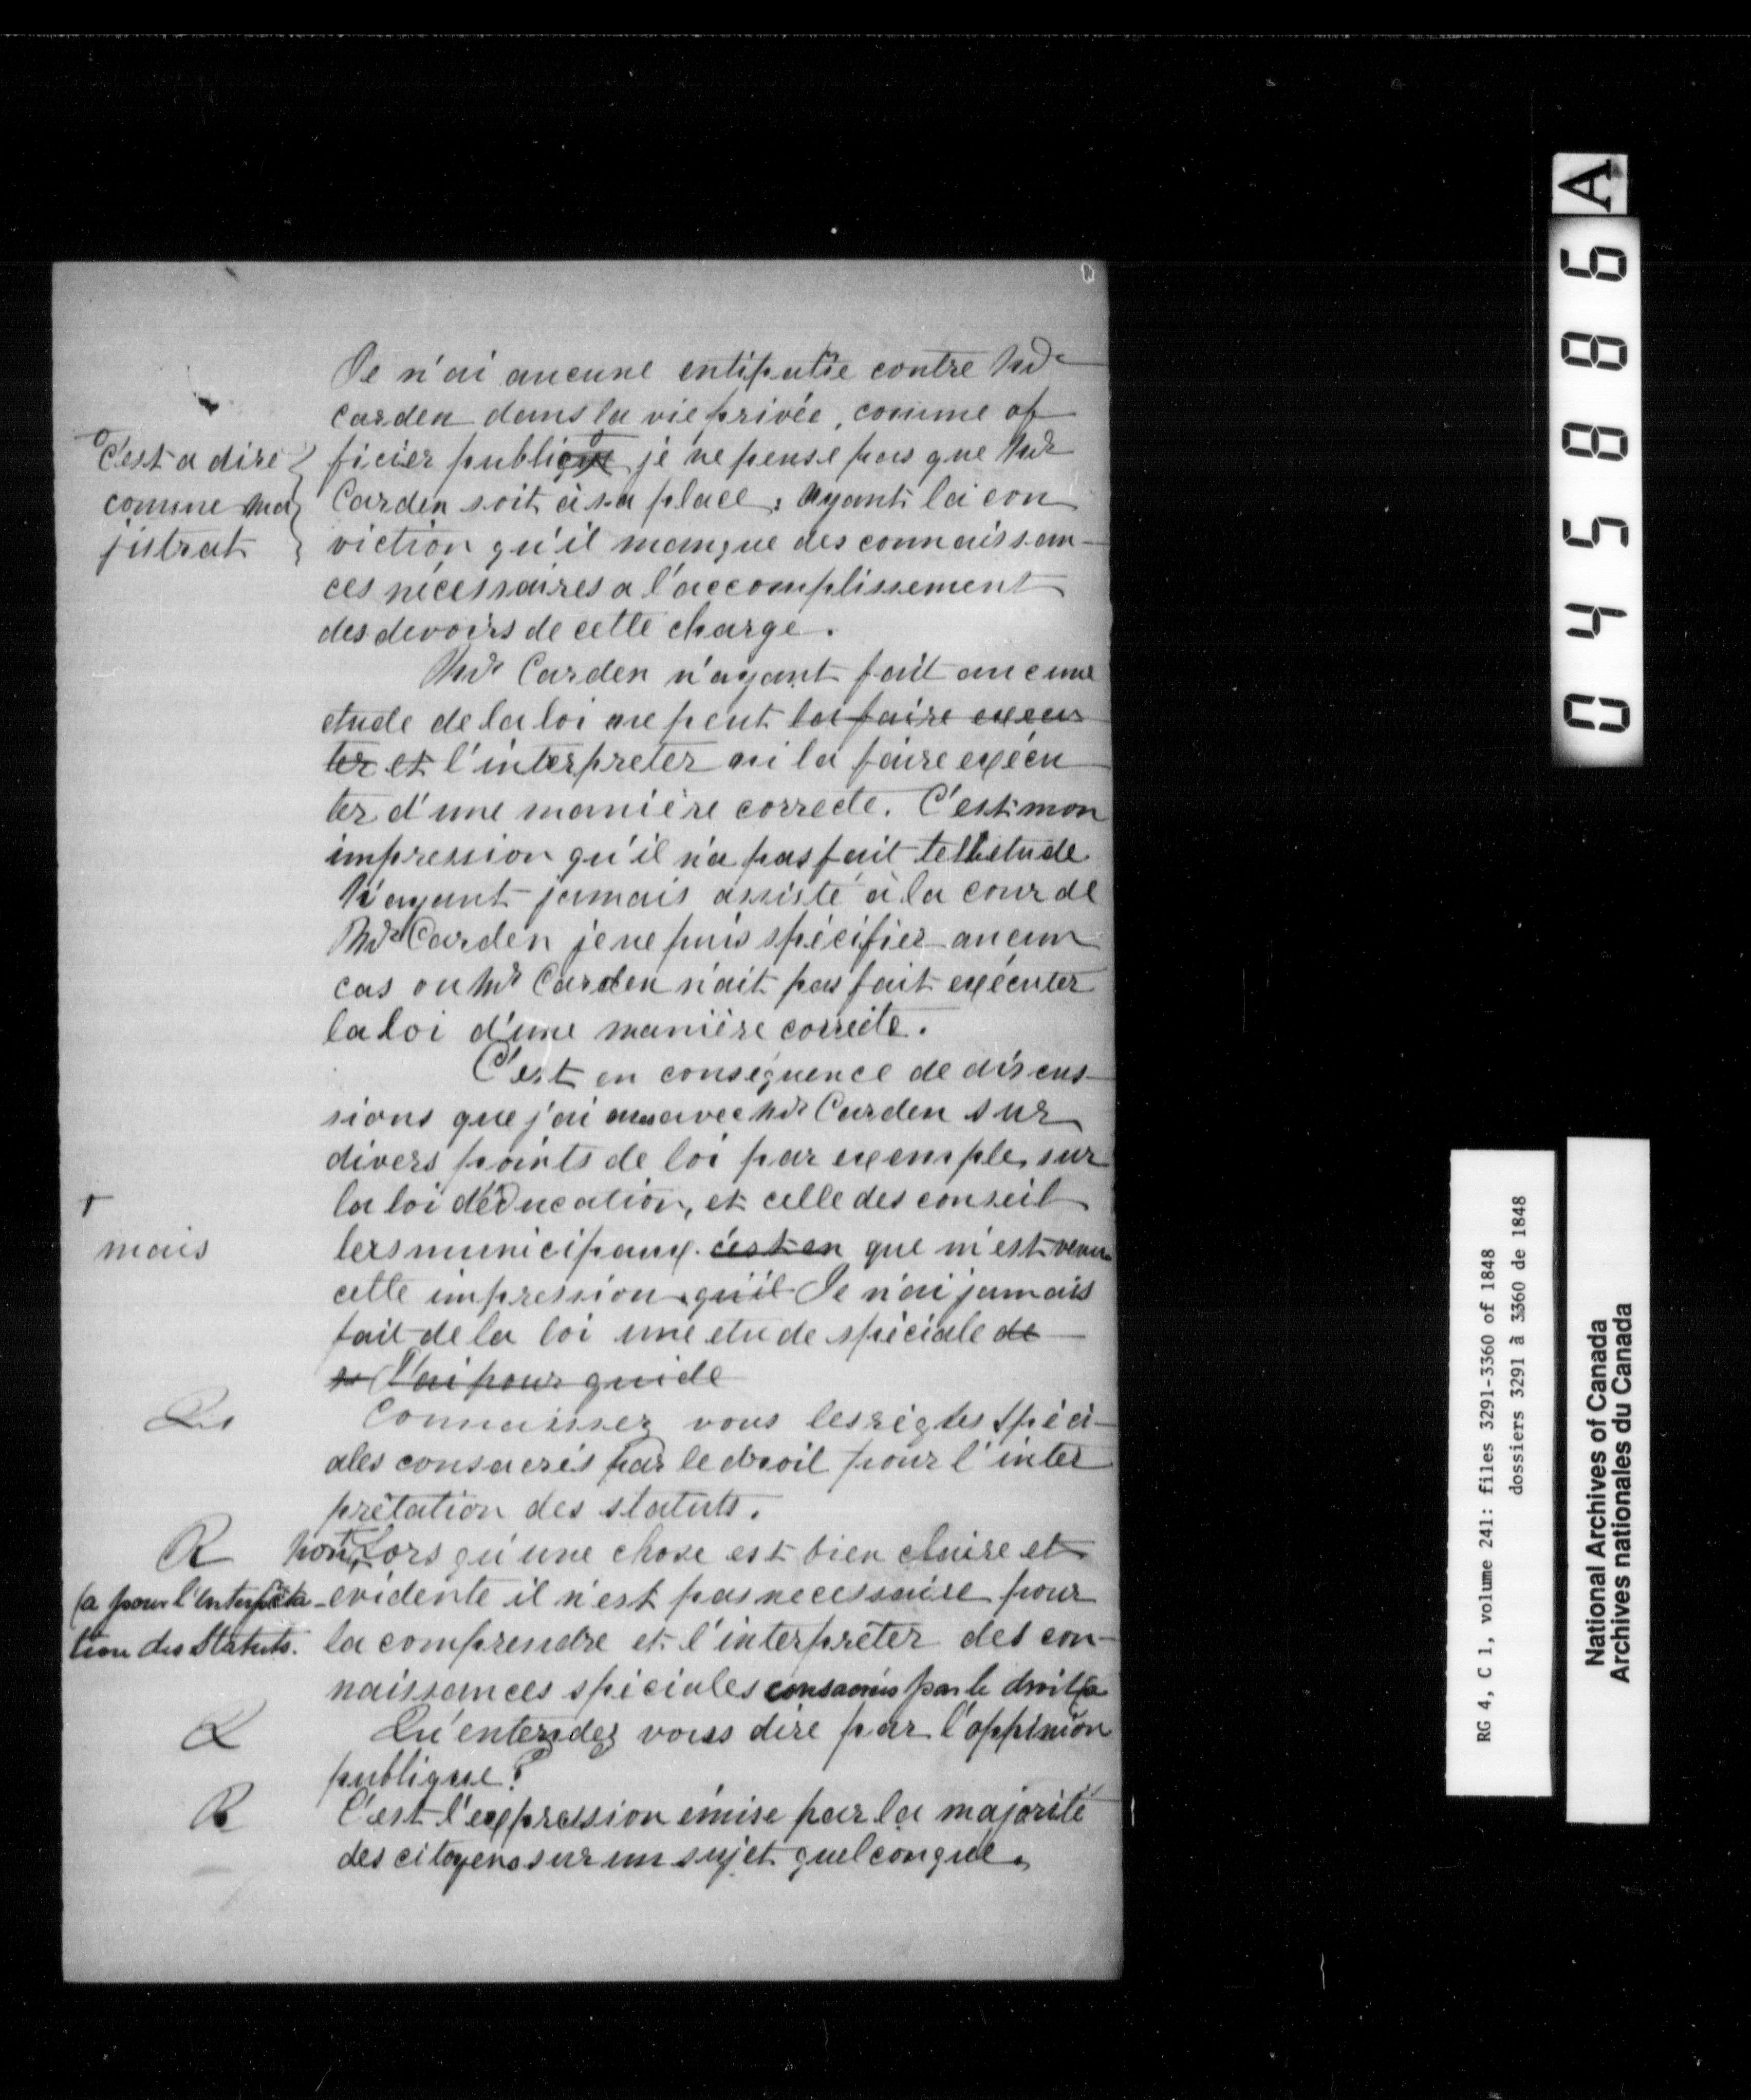 Je n'ai aucune entipatie contre Mr
Carden dans la vie privée, comme of
ficier publique je ne pense pas que Mr
C'est a dire
comme ma
jistrat
Carden soit à sa place ; ayant la con
viction qu'il manque des connaissan-
ces nécessaires a l'accomplissement
des devoirs de cette charge.
Mr Carden n'ayant fait aucune
etude de la loi ne peut la faire execu
ter et l'interpreter ni la faire exécu
ter d'une manière correcte. C'est mon
impression qu'il n'a pas fait telle etude
N'ayant jamais assisté à la cour de
Mr Carden je ne puis spécifier aucun
cas ou Mr Carden n'ait pas fait exécuter
la loi d'une manière correcte.
C'est en conséquence de discus-
sions que j'ai avec Mr Carden sur
divers points de loi par exemple, sur
la loi d'éducation, et celle des conseil
mais
lers municipaux. c'est en que m'est venu
cette impression qu'il Je n'ai jamais
fait de la loi une etude spéciale de
l'ai pour guide
Qs
Connaissez vous les règles spéci-
ales consacrés par le droit pour l'inter
prètation des statuts.
R
Non, Lorsqu'une chose est bien claire et
evidente il n'est pas necessaire pour
(a pour l'interpréta
tion des Statuts.
la comprendre et l'interprêter des con-
naissances spéciales consacrés par le droit (a
Q
Qu'entendez vous dire par l'oppinion
publique?
R
C'est l'expression émise par la majorité
des citoyens sur un sujet quelconque.
045886 A
RG 4, C 1, volume 241: files 3291-3360 of 1848
dossiers 3291 à 3360 de 1848
National Archives of Canada
Archives nationales du Canada